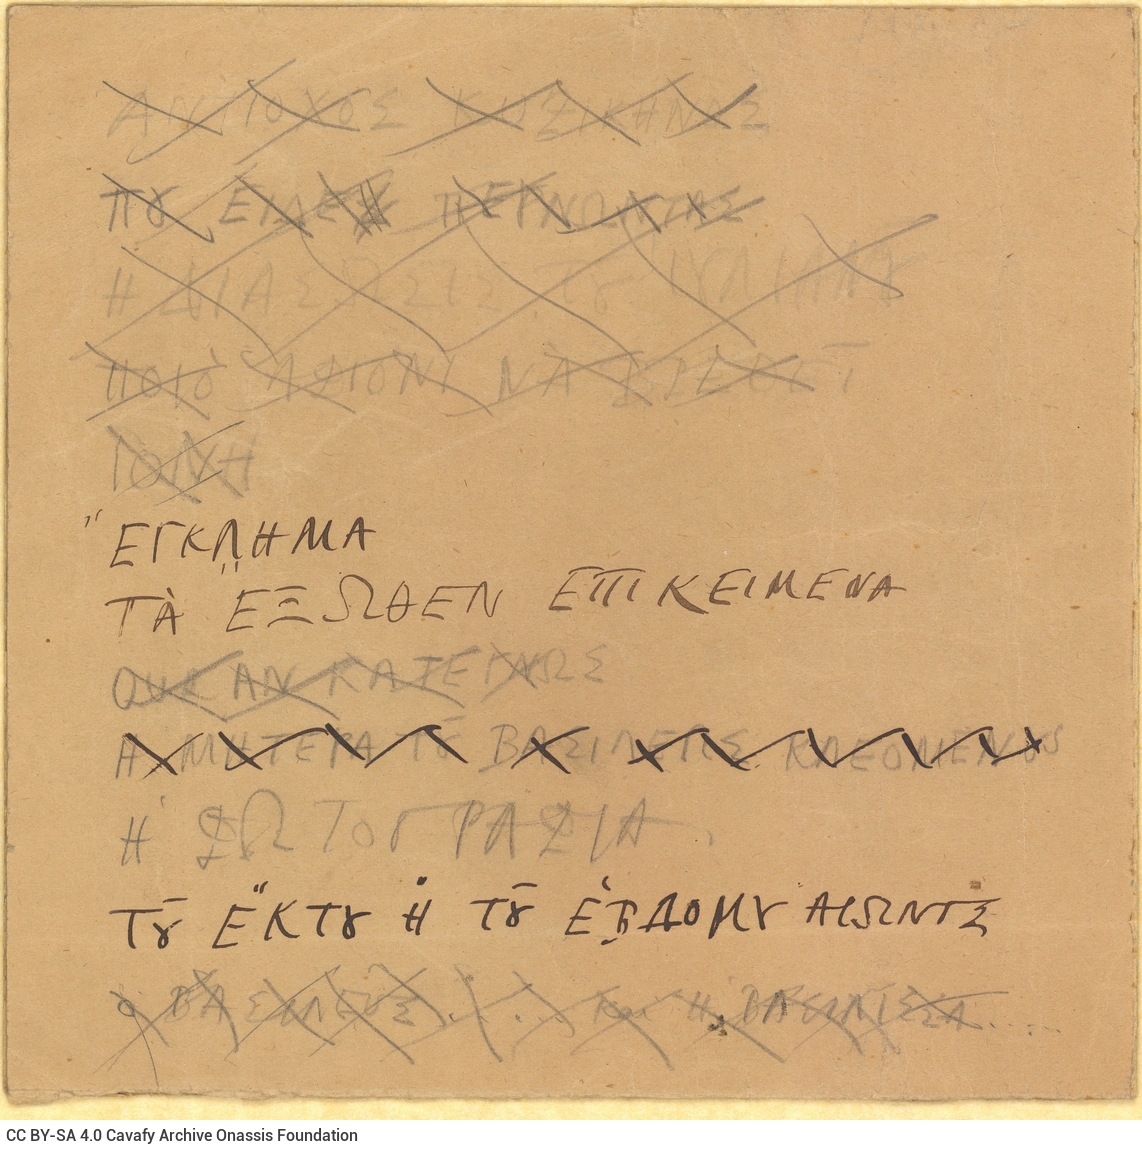 ΑΝΤΙΟΧΟΣ ΚΥΖΙΚΗΝΟΣ
Πȣ ΕΙΔΕ ΠΕΡΝΩΝΤΑΣ
Η ΔΙΑΣΩΣΙΣ Τȣ ΙȢΛΙΑΝȣ
ΠΟΙΟ ΝΑ
ΠΟΙΝΗ
ἜΓΚΛΗΜΑ
ΤᾺ ἜΞΩΘΕΝ ἘΠΙΚΕΙΜΕΝΑ
ΟΥΚ ΑΝ ΚΑΤΕΓΝΩΣ
Η ΜΗΤΕΡΑ Τȣ͂ ΒΑΣΙΛΕΩΣ ΚΛΕΟΜΕΝȣΣ
Ἡ ΦΩΤΟΓΡΑΦΙΑ.
Τȣ͂ ἝΚΤȣ Ἢ Τȣ͂ ἙΒΔΟΜȣ ΑἸΩΝΟΣ
Ὁ ΒΑΣΙΛΕΥΣ ..... και Ἡ ΒΑΣΙΛΙΣΣΑ.....
CC BY-SA 4.0 Cavafy Archive Onassis Foundation